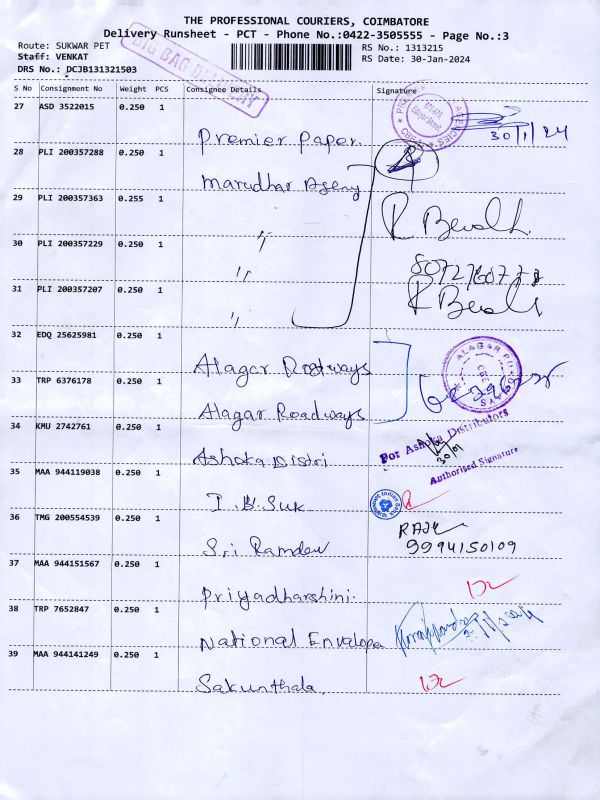 THE PROFESSIONAL COURIERS, COIMBATORE
Delivery Runsheet - PCT - Phone No.:0422-3505555 - Page No.:3
Route: SUKWAR PET
RS No.: 1313215
Staff: VENKAT
RS Date: 30-Jan-2024
DRS No.: DCJB131321503
BIG BAG DELIVERY
S No Consignment No Weight PCS Consignee Details Signature
27 ASD 3522015 0.250 1
Premier Paper.
30/1/24
28 PLI 200357288 0.250 1
Marudhar Ageny
29 PLI 200357363 0.255 1
〃
30 PLI 200357229 0.250 1
〃
31 PLI 200357207 0.250 1
〃
32 EDQ 25625981 0.250 1
Alagar Roadways
33 TRP 6376178 0.250 1
Alagar Roadways
34 KMU 2742761 0.250 1
For Ashoka Distributors
30/01
Authorised Signature
Ashoka Distri
35 MAA 944119038 0.250 1
I.B. Suk
36 TMG 200554539 0.250 1
RAJU
9994150109
Sri Ramdev
37 MAA 944151567 0.250 1
Priyadharshini.
38 TRP 7652847 0.250 1
National Envalopa
39 MAA 944141249 0.250 1
Sakunthala.